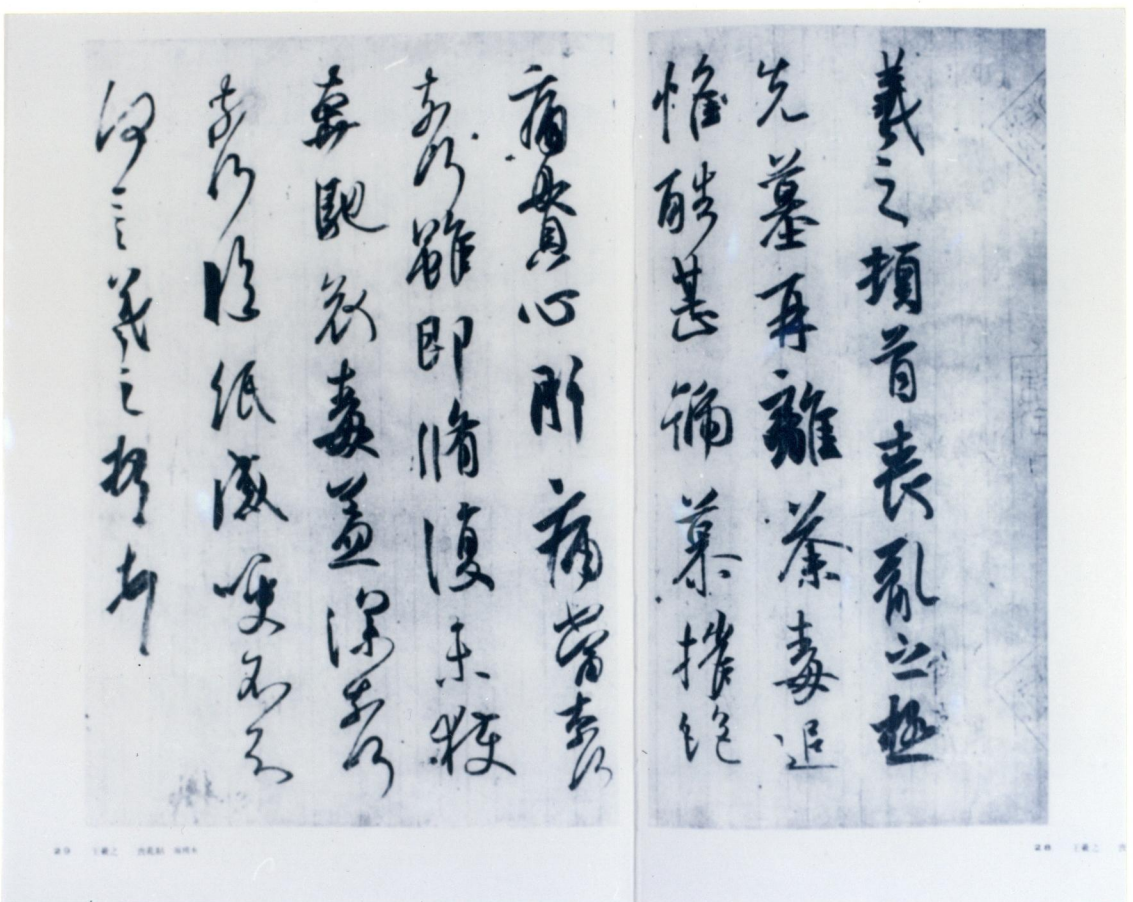 羲之頓首喪亂之極
先墓再離荼毒追
惟酷甚號慕摧絕
痛貫心肝痛當奈何
奈何雖即脩復未獲
奔馳哀毒益深奈何
奈何臨紙感哽不知
何言羲之頓首頓首
王羲之 喪亂帖
王羲之